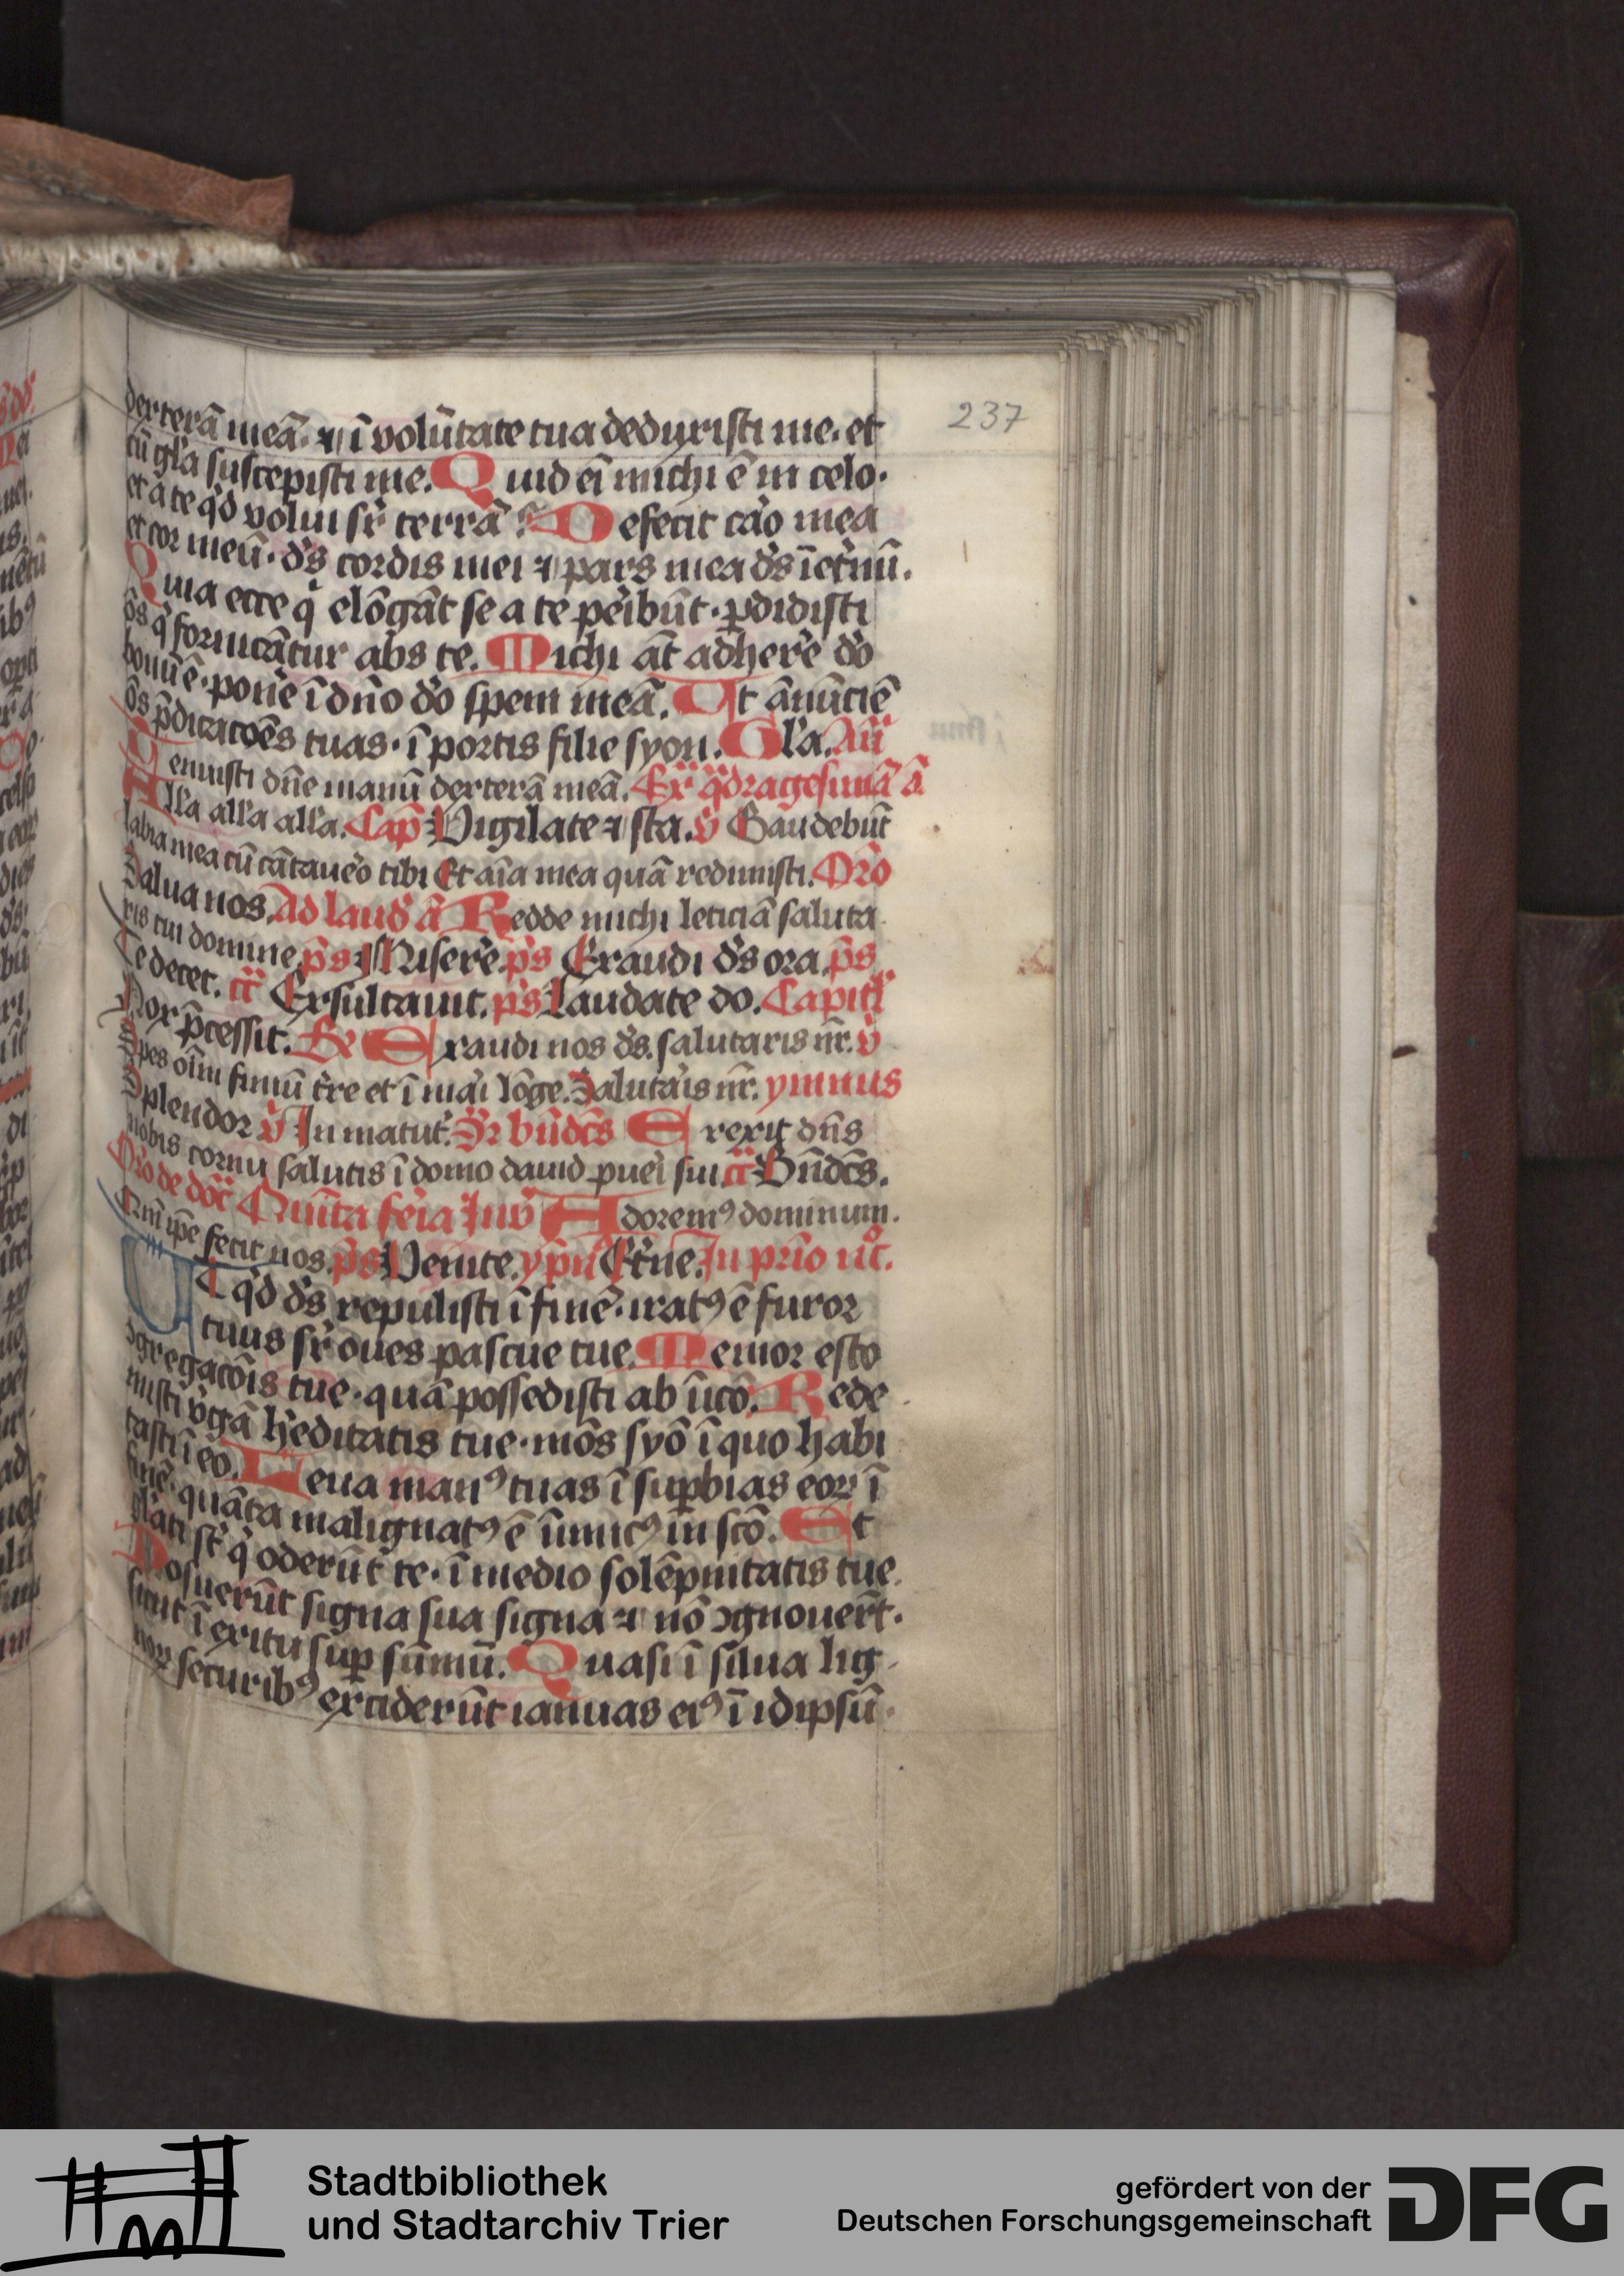 237
dexterã meã· ⁊ ĩ volũtate tua deduxisti me· et
cũ gl'a suscepisti me. Quid eĩ michi ẽ in celo·
et a te q̇d volui sr̃ terrã? Defecit ca'o mea
et cor meũ· ds̃ cordis mei ⁊ pars mea ds̃ ĩet'nũ.
Quia ecce q̇ elõgãt se a te pe'ibũt· ꝑdidisti
õs q̇ fornicãtur abs te. Michi ãt adhere' do
bonũ ẽ· pone' ĩ dño do spem meã. Ut ãnũciẽ
õs p̃dicacões tuas· ĩ portis filie syon. Gl'a. Añ
Tenuisti dñe manũ dexterã meã. Ex̃ q̃dragesimã ã
All'a all'a all'a. Cap̃ Vigilate ⁊ sta. v̇ Gaudebũt
labia mea cũ cãtaue'o tibi Et aĩa mea quã redimisti. Oro
Salua nos. Ad laud' ã Redde michi leticiã saluta
ris tui domine. p̃s Misere'. p̃s Exaudi ds̃ ora. p̃s
Te decet. cc̃ Exsultauit. p̃s Laudate do. Capitl'
Nox p̃cessit. R̃ Exaudi nos ds̃. salutaris nr̃. v̇
Spes oĩm finiũ t're et ĩ ma'i lõge. Saluta'is nr̃. ymnus
Splendor v̇ In matut'. Sr bñdcs̃ Erexit dñs
nobis cornu salutis ĩ domo dauid pue'i sui cc̃ Bñdcs̃.
Oro de doc̃ Quĩta fe'ia Inv̇ Adoremꝰ dominum.
Qm̃ ip̃e fecit nos. p̃s Venite. ypñ Et'ne. In pri'o nc̃.
Ut q̇d ds̃ repulisti ĩ finẽ· iratꝰ ẽ furor
tuus sr̃ oues pascue tue. Memor esto
ↄgregacõis tue· quã possedisti ab ĩicõ. Rede
misti v̇gã he'editatis tue· mõs syõ ĩ quo habi
tasti ĩ eo. Leua manꝰ tuas ĩ suꝑbias eoꝝ ĩ
finẽ· quãta malignatꝰ ẽ ĩimicꝰ in scõ. Et
gl'ati st̃ q̇ oderũt te· ĩ medio solẽpnitatis tue.
Posuerũt signa sua signa ⁊ nõ ↄgnouer̃t.
sicut ĩ exitu suꝑ sũmũ. Quasi ĩ silua lig
noꝝ securibꝰ exciderũt ianuas eiꝰ ĩ idipsũ·
Stadtbibliothek
und Stadtarchiv Trier
gefördert von der
Deutschen Forschungsgemeinschaft
DFG